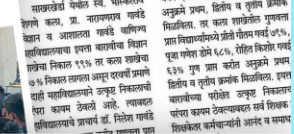 साखरखेर्डा येथील स्व. भास्करराव
शिंगणे कला, प्रा. नारायणराव गावंडे
विज्ञान व आशालता गावंडे वाणिज्य
महाविद्यालयाचा इयत्ता बारावीचा विज्ञान
शाखेचा निकाल ९९% तर कला शाखेचा
७ % निकाल लागला असून दरवर्षी प्रमाणे
याही महाविद्यालयाने उत्कृष्ट निकालाची
परंपरा कायम ठेवली आहे. त्याबद्दल
महाविद्यालयाचे प्राचार्य डॉ. निलेश गावंडे
अनुक्रमे प्रथम, द्वितीय व तृतीय क्रमांक
मिळविला. तर कला शाखेतील गुणवत्ता
प्राप्त विद्यार्थ्यांमध्ये प्रोती गौतम गवई ७१%,
पूजा गणेश डोमे ६८%, रोहित किशोर गवई
६३% गुण प्राप्त करीत अनुक्रमे प्रथम,
द्वितीय व तृतीय क्रमांक मिळविला. इयत्ता
बारावीच्या परीक्षेत उत्कृष्ट निकालाची
परंपरा कायम ठेवल्याबद्दल सर्व शिक्षक
शिक्षकेतर कर्मचाऱ्यांनी आनंद व समाधान